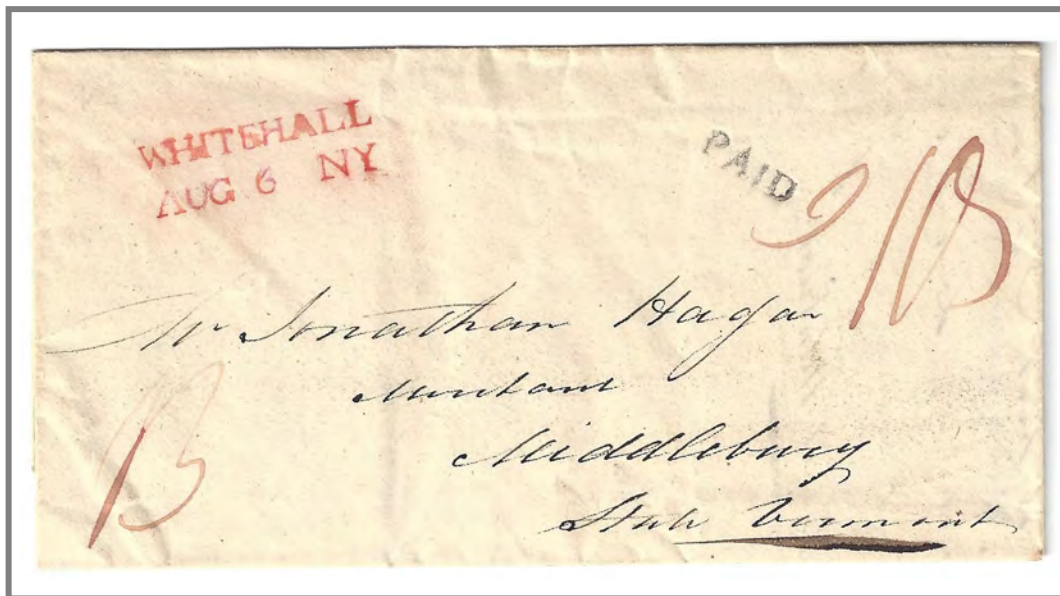 WHITEHALL
AUG 6 NY
PAID
Mr Jonathan Hagar
Middlebury
State Vermont